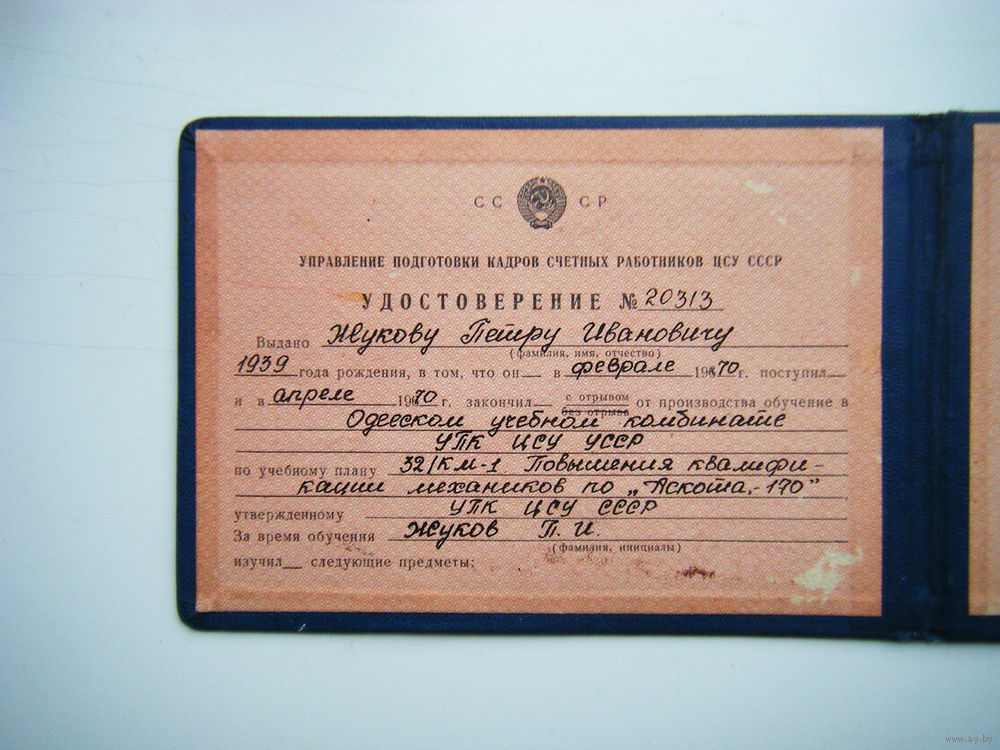 СС СР
УПРАВЛЕНИЕ ПОДГОТОВКИ КАДРОВ СЧЕТНЫХ РАБОТНИКОВ ЦСУ СССР
УДОСТОВЕРЕНИЕ № 20313
Выдано Жукову Петру Ивановичу
(фамилия, имя, отчество)
1939 года рождения, в том, что он__ в феврале 1970 г. поступил__
и в апреле 1970 г. закончил__ с отрывом
без отрыва от производства обучение в
Одесском учебном комбинате
УПК ЦСУ УССР
по учебному плану 32/КМ-1. Повышения квалифи-
кации механиков по „Аскота-170"
утвержденному УПК ЦСУ СССР
За время обучения Жуков П. И.
(фамилия, инициалы)
изучил__ следующие предметы:
www.ay.by